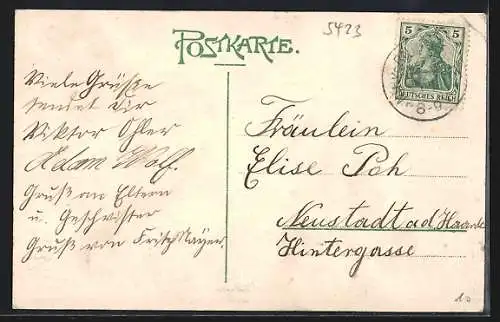 5423
POSTKARTE.
5 5
DEUTSCHES REICH
Viele Grüße
sendet dir
Viktor Ohler
Adam Wolf.
Gruß an Eltern
u. Geschwister
Gruß von Fritz Mayer
Fräulein
Elise Poh
Neustadt a/d Haardt
Hintergasse
10